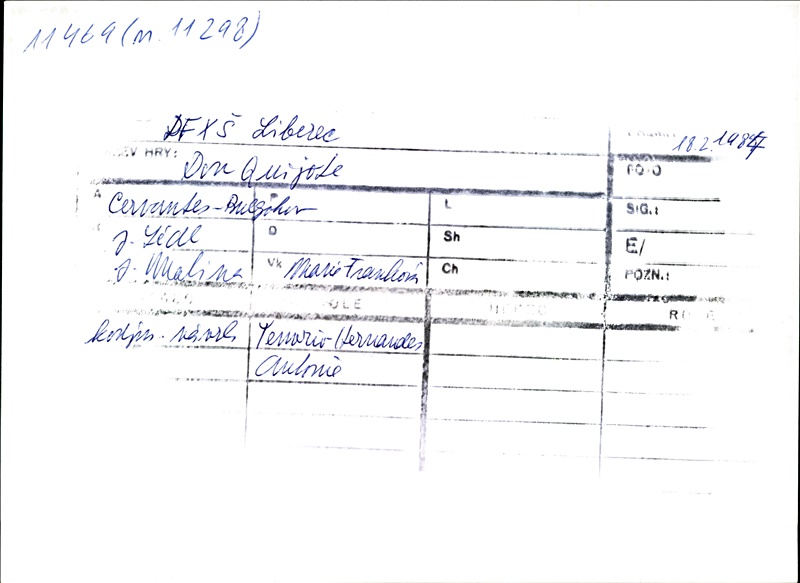 11469 (n. 11298)
DFXŠ Liberec
18.2.1987
EV HRY: Don Quijote
FOTO
A Cervantes-Bulgakov L SIG.:
J. Lédl O Sh E/
J. Malina Vk Marie Franková Ch POZN.:
kostým. návrh Tenorio Hernandes
Antonie